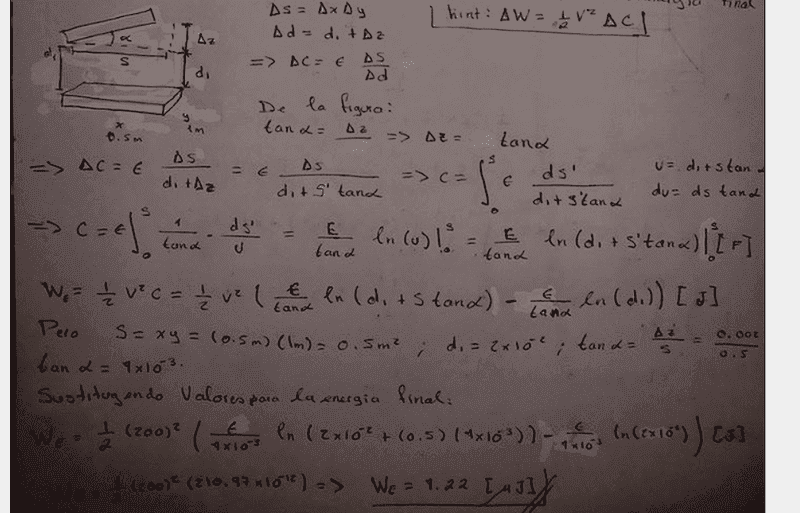 energia final
Δs = Δx Δy
hint: ΔW = 1/2 V² ΔC
Δd = d₁ + Δz
=> ΔC = ε Δs/Δd
α
Δz
s
d₁
d₁
x
0.5m
y
1m
De la figura:
tan α = Δz => Δz = tan α
=> ΔC = ε Δs/(d₁ + Δz) = ε Δs/(d₁ + s' tan α) => C = ∫₀ˢ ε ds'/(d₁ + s' tan α)
u = d₁ + s tan α
du = ds tan α
=> C = ε ∫₀ˢ 1/tan α · ds'/u = ε/tan α ln(u)|₀ˢ = ε/tan α ln(d₁ + s' tan α)|₀ˢ [F]
W_E = 1/2 V² C = 1/2 V² (ε/tan α ln(d₁ + s tan α) - ε/tan α ln(d₁)) [J]
Pero S = xy = (0.5m)(1m) = 0.5m² ; d₁ = 2x10⁻² ; tan α = Δz/s = 0.002/0.5
tan α = 4x10⁻³.
Sustituyendo Valores para la energia final:
W_E = 1/2 (200)² (ε/4x10⁻³ ln(2x10⁻² + (0.5)(4x10⁻³)) - ε/4x10⁻³ ln(2x10⁻²)) [J]
(200)² (210.97x10⁻¹²) => W_E = 4.22 [μJ]